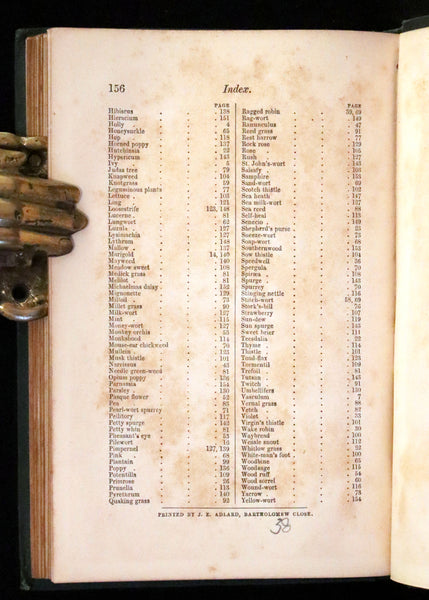 156 Index.
PAGE
Hibiscus 138
Hieracium 151
Holly 4
Honeysuckle 65
Hop 118
Horned poppy 137
Hutchinsia 22
Hypericum 143
Ivy 5
Judas tree 79
Knapweed 104
Knotgrass 59
Leguminous plants 77
Lettuce 103
Ling 121
Loosestrife 123, 148
Lucerne 81
Lungwort 62
Luzula 127
Lysimachia 127
Lythrum 148
Mallow 137
Marigold 14, 140
Mayweed 140
Meadow sweet 108
Medick grass 81
Melilot 81
Michaelmas daisy 152
Mignonette 129
Milfoil 73
Millet grass 90
Milk-wort 127
Mint 115
Money-wort 127
Monkey orchis 53
Monkshood 114
Mouse-ear chickweed 70
Mullein 123
Musk thistle 101
Narcissus 43
Needle green-weed 81
Opium poppy 136
Parnassia 154
Parsley 130
Pasque flower 52
Pea 83
Pearl-wort spurrey 71
Pellitory 117
Petty spurge 143
Petty whin 81
Pheasant's eye 55
Pilewort 16
Pimpernel 127, 159
Pink 68
Plantain 99
Poppy 136
Potentilla 109
Primrose 26
Prunella 113
Pyrethrum 140
Quaking grass 92
PAGE
Ragged robin 59, 69
Rag-wort 149
Ranunculus 47
Reed grass 91
Rest harrow 77
Rock rose 129
Rose 105
Rush 127
St. John's-wort 143
Salsafy 103
Samphire 153
Sand-wort 69
Scotch thistle 102
Sea heath 147
Sea milk-wort 127
Sea reed 88
Self-heal 113
Senecio 149
Shepherd's purse 23
Sneeze-wort 75
Soap-wort 68
Southernwood 153
Sow thistle 104
Speedwell 56
Spergula 70
Spiræa 108
Spurge 143
Spurrey 70
Stinging nettle 116
Stitch-wort 58, 69
Stork's-bill 76
Strawberry 107
Sun-dew 119
Sun spurge 143
Sweet brier 111
Teesdalia 22
Thyme 114
Thistle 101
Toad-flax 123
Tormentil 109
Trefoil 81
Tutsan 143
Twitch 91
Umbellifers 130
Vasculum 7
Vernal grass 88
Vetch 82
Violet 33
Virgin's thistle 101
Wake robin 30
Waybread 100
Weasle snout 112
Whitlow grass 22
White-man's foot 100
Woodbine 65
Woodsage 115
Wood ruff 54
Wood sorrel 60
Wound-wort 116
Yarrow 73
Yellow-wort 154
PRINTED BY J. E. ADLARD, BARTHOLOMEW CLOSE.
38